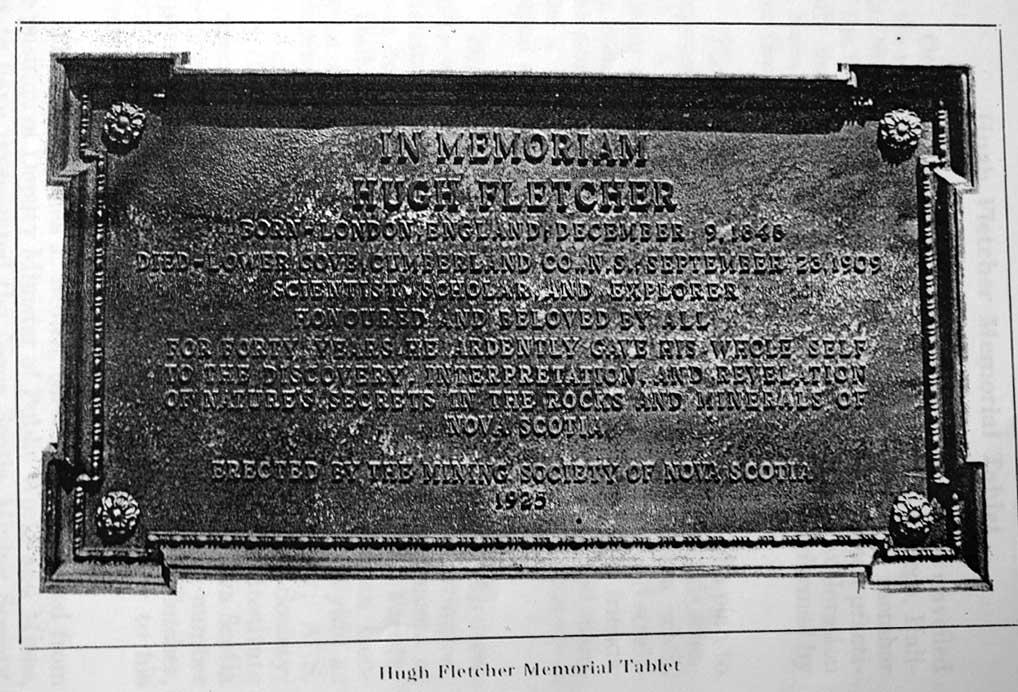 IN MEMORIAM
HUGH FLETCHER
BORN-LONDON, ENGLAND, DECEMBER 9, 1848
DIED-LOWER COVE, CUMBERLAND CO., N.S., SEPTEMBER 23, 1909
SCIENTIST, SCHOLAR, AND EXPLORER
HONOURED AND BELOVED BY ALL
FOR FORTY YEARS HE ARDENTLY GAVE HIS WHOLE SELF
TO THE DISCOVERY, INTERPRETATION, AND REVELATION
OF NATURE'S SECRETS IN THE ROCKS AND MINERALS OF
NOVA SCOTIA
ERECTED BY THE MINING SOCIETY OF NOVA SCOTIA
1925
Hugh Fletcher Memorial Tablet